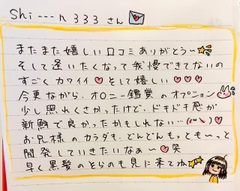 Shi---n 333 さん
またまた嬉しい口コミありがとう〜
そして逢いたくなって我慢できてないの
すごくカワイイ♡そして嬉しい♡♡♡
今更ながら、オロニー鶴愛のオプション
少し恐れくさかったけど、ドキドキ感が
新鮮で良かったかもしれない…(〃∀〃)♡
お兄様のカラダを、どんどんもっともーっと
開発していきたいなぁ〜♡笑
早く黒髪のとらのも見に来てね